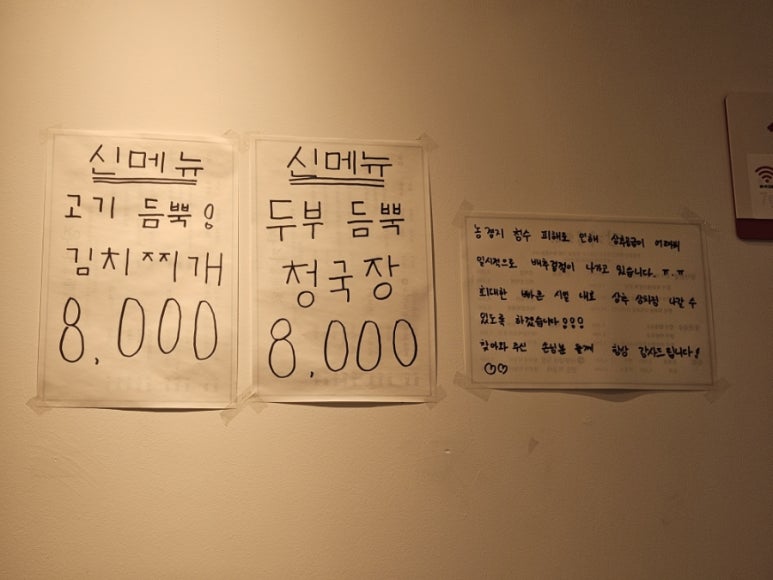 신메뉴
고기 듬뿍!
김치찌개
8,000
신메뉴
두부 듬뿍
청국장
8,000
농경지 침수 피해로 인해 상추공급이 어려워
일시적으로 배추겉절이 나가고 있습니다.. ㅠ.ㅠ
최대한 빠른 시일 내로 상추 나갈 수
있도록 하겠습니다!!!
찾아와 주신 손님분들께 항상 감사드립니다!